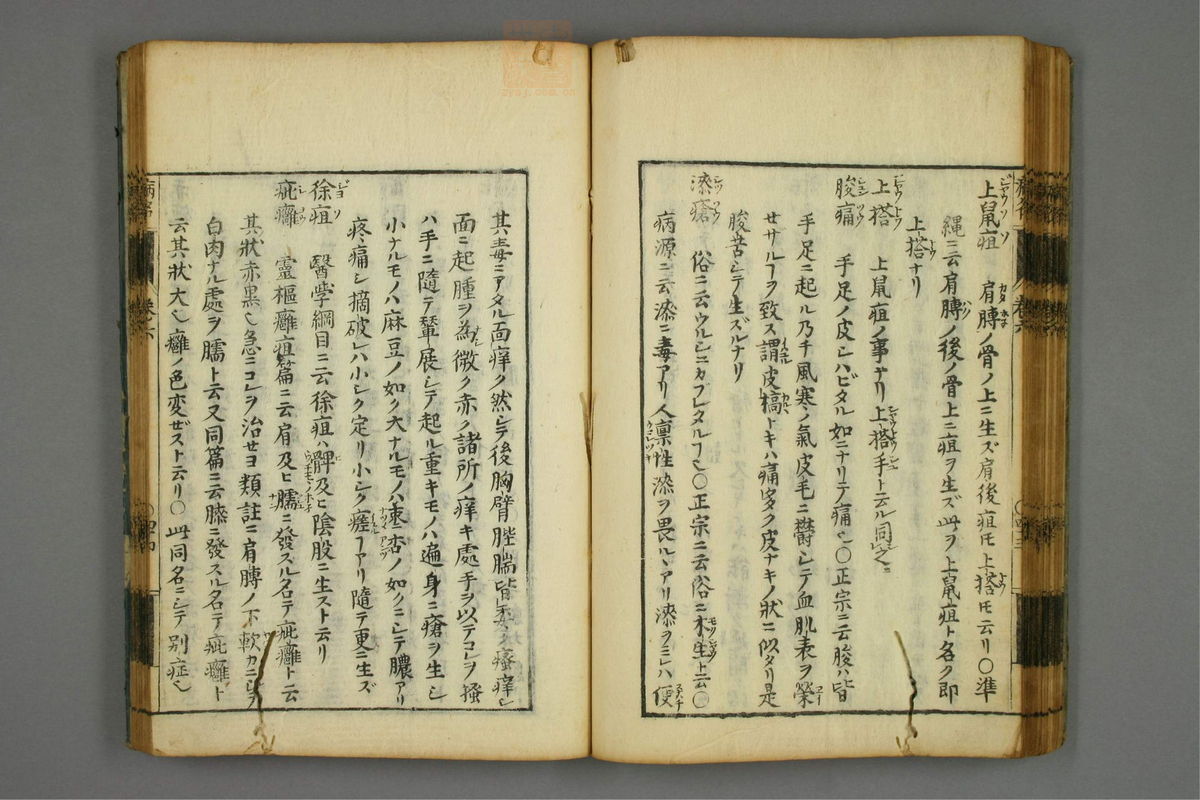 上鼠疽　肩膊ノ骨ノ上ニ生ズ肩後疽𪜈上搭𪜈云リ〇準
縄ニ云肩膊ノ後ノ骨上ニ疽ヲ生ズ此ヲ上鼠疽ト名ク即
上搭ナリ
上搭　上鼠疽ノ事ナリ上搭手ト云ル同之
朘痛　手足ノ皮シハビタル如ニナリテ痛也〇正宗ニ云朘ハ皆
手足ニ起ル乃チ風寒ノ氣皮毛ニ欝シテ血肌表ヲ榮
セサルヿヲ致ス謂皮槁トキハ痛多ク皮ナキノ状ニ似タリ是
朘苦シテ生ズルナリ
漆瘡　俗ニ云ウルシニカブレタルヿ也〇正宗ニ云俗ニ木生ト云〇
病源ニ云漆ニ毒アリ人禀性漆ヲ畏ルヽアリ漆ヲミレハ便
其毒ニアタル面痒ク然シテ後胸臂䏶腨皆悉ク瘙痒シ
面ニ起腫ヲ為微ク赤ク諸所ノ痒キ處手ヲ以テコレヲ搔
ハ手ニ隨テ輦展シテ起ル重キモノハ遍身ニ瘡ヲ生シ
小ナルモノハ麻豆ノ如ク大ナルモノハ棗杏ノ如クニシテ膿アリ
疼痛シ摘破レハ小シク定リ小シク瘥ヿアリ隨テ更ニ生ズ
徐疽　醫学綱目ニ云徐疽ハ髀及ヒ陰股ニ生ストニ云リ
疵癰　靈樞癰疽篇ニ云肩及ヒ臑ニ發スル名テ疵癰ト云
其状赤黒也急ニコレヲ治セヨ類註ニ肩膊ノ下軟カニシテ
白肉ナル處ヲ臑ト云又同篇ニ云膝ニ發スル名テ疵癰ト
云其状大也癰ノ色変ゼズト云リ〇此同名ニシテ別症也
卷六